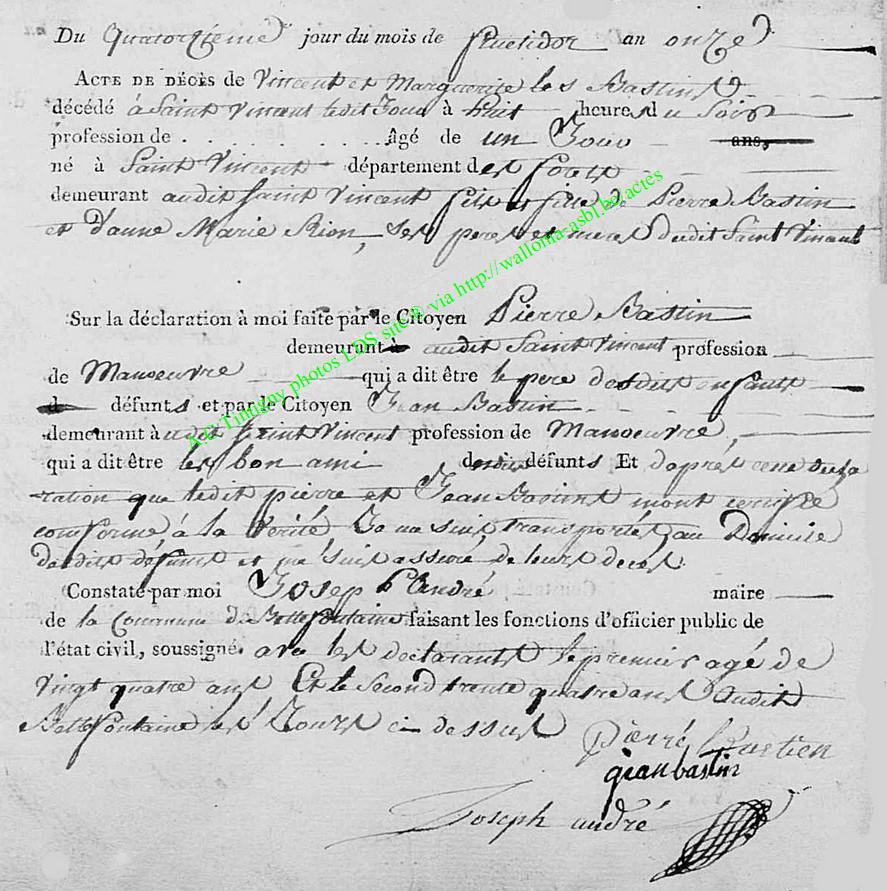 Du Quatorzieme jour du mois de fructidor an onze
ACTE DE DÉCÈS de Vincent et Marguerite les Bastins
décédé à Saint Vincent ledit Jour à huit heures du Soir
profession de . . . . . . . . . . âgé de un Jour ans,
né à Saint Vincent département des forets
demeurant audit Saint Vincent fils et fille de Pierre Bastin
et d'anne Marie Rion, ses peres et meres dudit Saint Vincent
Sur la déclaration à moi faite par le Citoyen Pierre Bastin
demeurant à audit Saint Vincent profession
de Manoeuvre qui a dit être le pere desdits enfants
d défunts et par le Citoyen Jean Bastin
demeurant à audit Saint Vincent profession de Manoeuvre,
qui a dit être les bon ami défunts Et d'aprés cette decla
ration que ledit pierre et Jean Bastins mont certifié
conforme à la Verité Je me suis transportés au Domicile
desdits défunts et me suis assuré de leurs decés
Constaté par moi Joseph André maire
de la Commune de Bellefontaine faisant les fonctions d'officier public de
l'état civil, soussigné avec les declarants le premier agé de
vingt quatre ans Et le Second trente quatre ans audit
Bellefontaine les Jours ci dessus
pierre Bastien
gianbastin
Joseph andré
AG Tintigny photos LDS site® via http://wallonia-asbl.be/actes